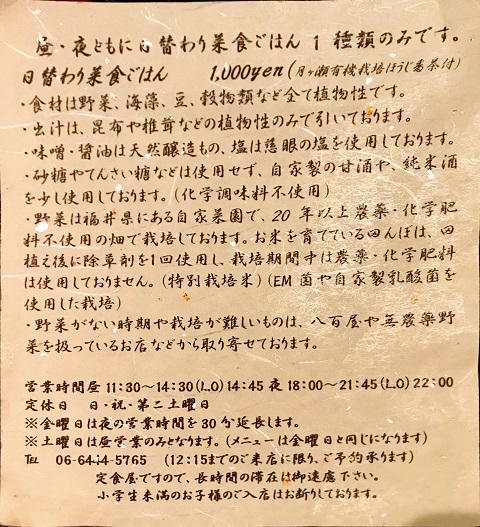 昼・夜ともに日替わり菜食ごはん1種類のみです。
日替わり菜食ごはん 1,000yen (月ヶ瀬有機栽培ほうじ番茶付)
・食材は野菜、海藻、豆、穀物類など全て植物性です。
・出汁は、昆布や椎茸などの植物性のみで引いております。
・味噌・醤油は天然醸造もの、塩は慈眼の塩を使用しております。
・砂糖やてんさい糖などは使用せず、自家製の甘酒や、純米酒
を少し使用しております。(化学調味料不使用)
・野菜は福井県にある自家菜園で、20年以上農薬・化学肥
料不使用の畑で栽培しております。お米を育てている田んぼは、田
植え後に除草剤を1回使用し、栽培期間中は農薬・化学肥料
は使用しておりません。(特別栽培米)(EM菌や自家製乳酸菌を
使用した栽培)
・野菜がない時期や栽培が難しいものは、八百屋や無農薬野
菜を扱っているお店などから取り寄せております。
営業時間昼11:30〜14:30(L.O)14:45 夜18:00〜21:45(L.O)22:00
定休日 日・祝・第二土曜日
※金曜日は夜の営業時間を30分延長します。
※土曜日は昼営業のみとなります。(メニューは金曜日と同じになります)
℡ 06-6414-5765 (12:15までのご来店に限り、ご予約承ります)
定食屋ですので、長時間の滞在は御遠慮下さい。
小学生未満のお子様のご入店はお断りしております。